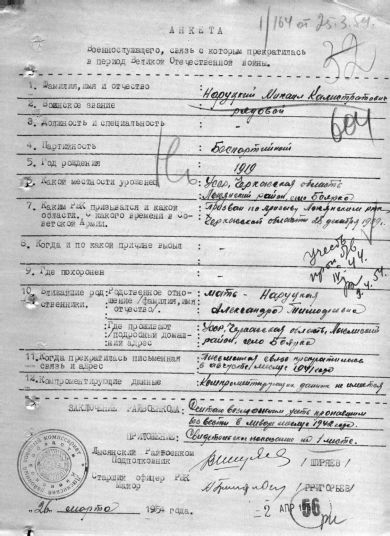 1/164 от 25.3.54.
АНКЕТА
Военнослужащего, связь с которым прекратилась
в период Великой Отечественной войны.
32
1. Фамилия, имя и отчество : Наруцкий Михаил Калистратович
2. Воинское звание : рядовой
604
3. Должность и специальность : –
4. Партийность : Беспартийный
5. Год рождения : 1919
6. Какой местности уроженец : Усср, Черкасская область
Лысянский район, село Боярка
7. Каким РВК призывался и какой : Призван по призыву Лысянским рвк
области. С какого времени в Со- : Черкасской области 28 декабря 1939г.
ветской Армии.
8. Когда и по какой причине выбыл : –
9. Где похоронен : –
10. Ближайшие род- Родственное отно- : мать – Наруцкая
ственники. шение /фамилия, имя : Александра
отчество/.
Где проживают : Усср, Черкасская область, Лысянский
/подробный домаш- : район, село Боярка
ний адрес
11. Когда прекратилась письменная : Письменная связь прекратилась
связь и адрес : в августе месяце 1941 года
12. Компрометирующие данные : компрометирующих данных не имеется
ЗАКЛЮЧЕНИЕ РАЙВОЕНКОМА: Считаю возможным учесть пропавшим
без вести в январе месяце 1942 года.
ПРИЛОЖЕНИЕ: на 1 листе.
Лысянский Райвоенком
Подполковник /ШИРЯЕВ/
Старший офицер РВК
майор /ГРИГОРЬЕВ/
26 марта 1954 года.
2 АПР 1954
56